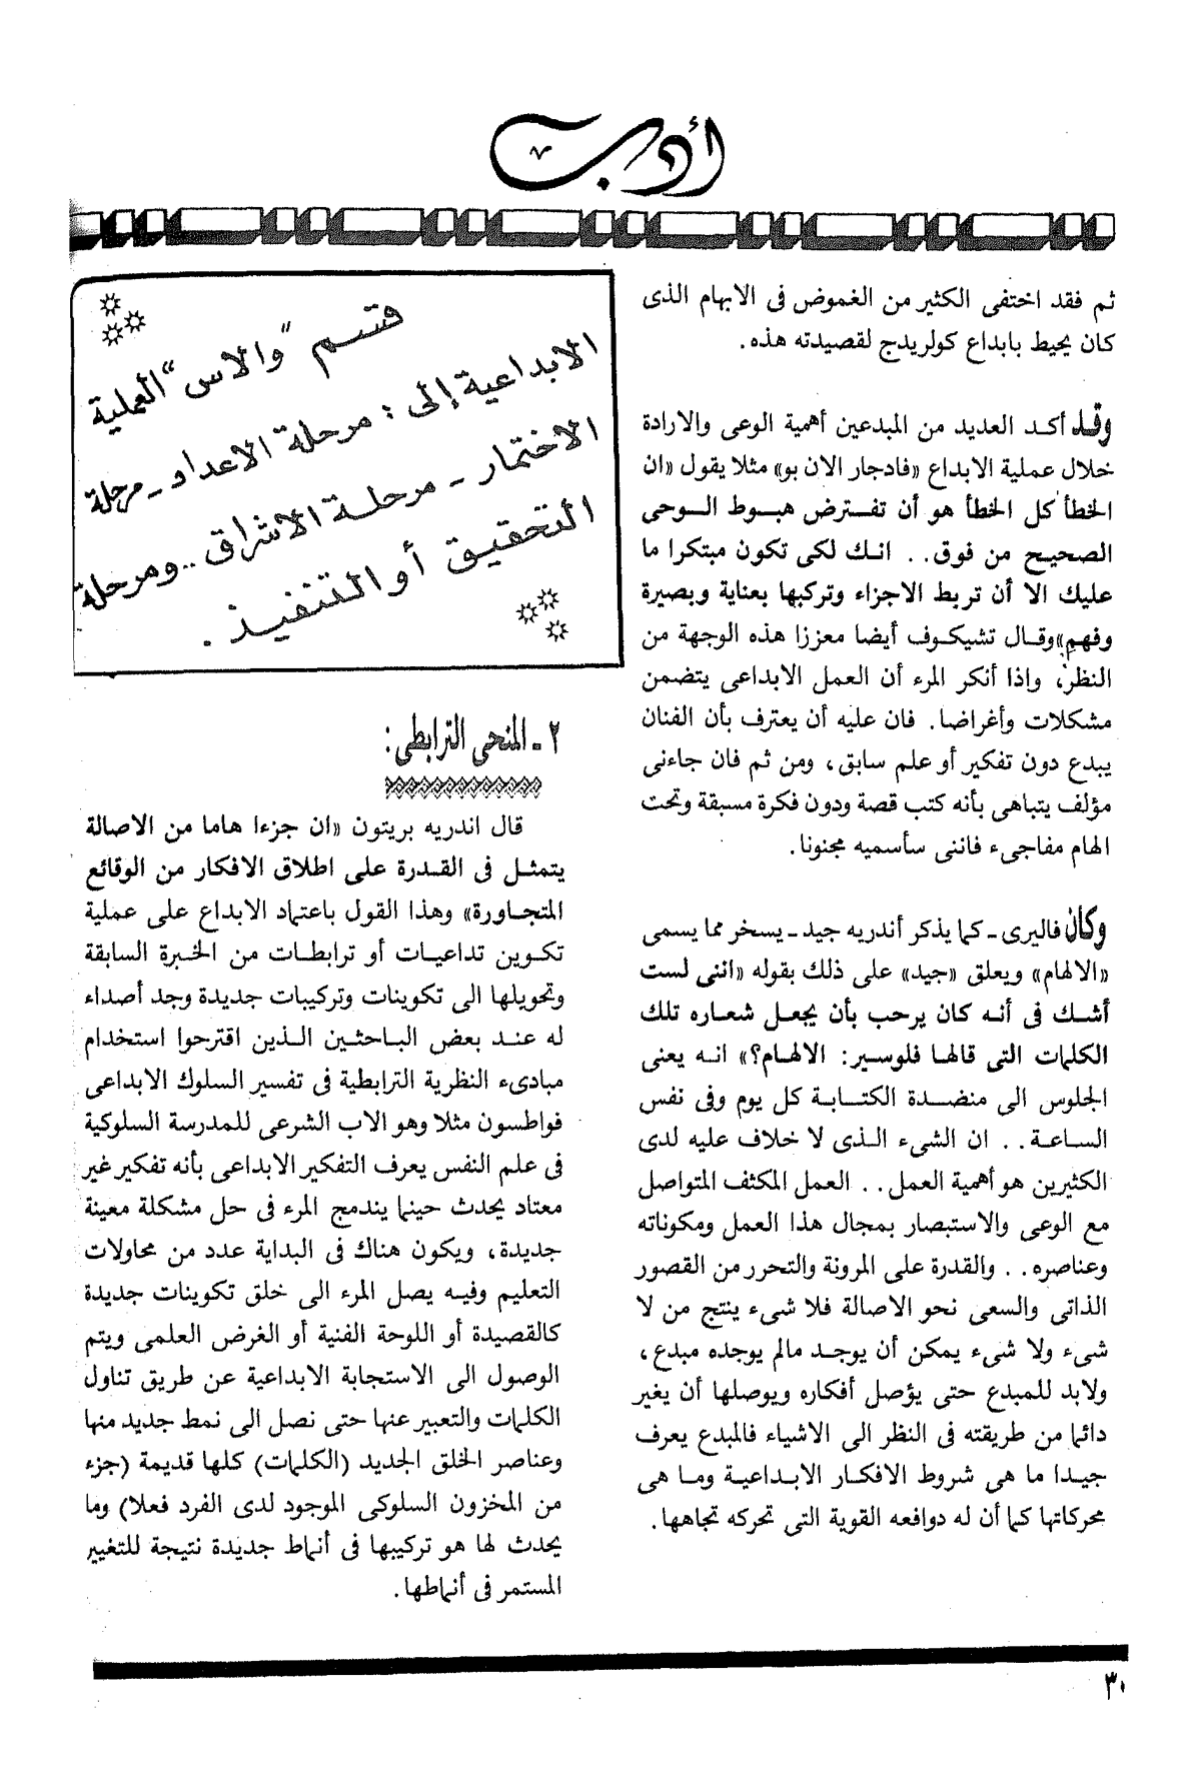 أدب
ثم فقد اختفى الكثير من الغموض فى الابهام الذى
كان يحيط بابداع كولريدج لقصيدته هذه.
وقد أكد العديد من المبدعين أهمية الوعى والارادة
خلال عملية الابداع «فادجار الان بو» مثلا يقول «ان
الخطأ كل الخطأ هو أن تفترض هبوط الوحى
الصحيح من فوق.. انك لكى تكون مبتكرا ما
عليك الا أن تربط الاجزاء وتركبها بعناية وبصيرة
وفهم» وقال تشيكوف أيضا معززا هذه الوجهة من
النظر، واذا أنكر المرء أن العمل الابداعى يتضمن
مشكلات وأغراضا. فان عليه أن يعترف بأن الفنان
يبدع دون تفكير أو علم سابق، ومن ثم فان جاءنى
مؤلف يتباهى بأنه كتب قصة ودون فكرة مسبقة وتحت
الهام مفاجىء فاننى سأسميه مجنونا.
وكان فاليرى ـ كما يذكر أندريه جيد ـ يسخر مما يسمى
«الالهام» ويعلق «جيد» على ذلك بقوله «اننى لست
أشك فى أنه كان يرحب بأن يجعل شعاره تلك
الكلمات التى قالها فلوسير: الالهام؟» انه يعنى
الجلوس الى منضدة الكتابة كل يوم وفى نفس
الساعة.. ان الشىء الذى لا خلاف عليه لدى
الكثيرين هو أهمية العمل.. العمل المكثف المتواصل
مع الوعى والاستبصار بمجال هذا العمل ومكوناته
وعناصره.. والقدرة على المرونة والتحرر من القصور
الذاتى والسعى نحو الاصالة فلا شىء ينتج من لا
شىء ولا شىء يمكن أن يوجد مالم يوجده مبدع،
ولابد للمبدع حتى يؤصل أفكاره ويوصلها أن يغير
دائما من طريقته فى النظر الى الاشياء فالمبدع يعرف
جيدا ما هى شروط الافكار الابداعية وما هى
محركاتها كما أن له دوافعه القوية التى تحركه تجاهها.
قسم "والاس" العملية
الابداعية إلى: مرحلة الاعداد ـ مرحلة
الاختمار ـ مرحلة الاشراق .. ومرحلة
التحقيق أو التنفيذ.
٢ ـ المنحى الترابطى:
قال اندريه بريتون «ان جزءا هاما من الاصالة
يتمثل فى القدرة على اطلاق الافكار من الوقائع
المتجاورة» وهذا القول باعتماد الابداع على عملية
تكوين تداعيات أو ترابطات من الخبرة السابقة
وتحويلها الى تكوينات وتركيبات جديدة وجد أصداء
له عند بعض الباحثين الذين اقترحوا استخدام
مبادىء النظرية الترابطية فى تفسير السلوك الابداعى
فواطسون مثلا وهو الاب الشرعى للمدرسة السلوكية
فى علم النفس يعرف التفكير الابداعى بأنه تفكير غير
معتاد يحدث حينما يندمج المرء فى حل مشكلة معينة
جديدة، ويكون هناك فى البداية عدد من محاولات
التعليم وفيه يصل المرء الى خلق تكوينات جديدة
كالقصيدة أو اللوحة الفنية أو الغرض العلمى ويتم
الوصول الى الاستجابة الابداعية عن طريق تناول
الكلمات والتعبير عنها حتى نصل الى نمط جديد منها
وعناصر الخلق الجديد (الكلمات) كلها قديمة (جزء
من المخزون السلوكى الموجود لدى الفرد فعلا) وما
يحدث لها هو تركيبها فى أنماط جديدة نتيجة للتغيير
المستمر فى أنماطها.
٣٠